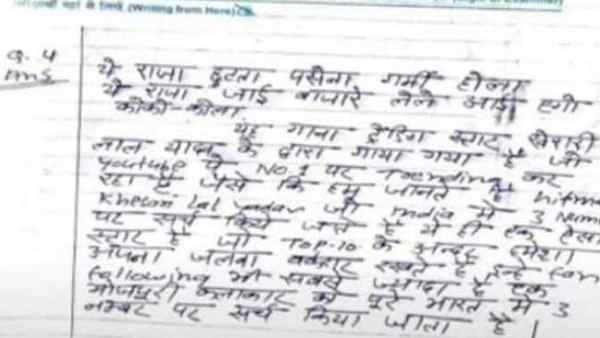 यहाँ से लिखें (Writing from Here)
Q. 4
Ans
ये राजा छुटता पसीना गर्मी होला
ये राजा जाई बाजारे लेले आई एगो
कोको-कोला
यह गाना ट्रेंडिंग स्टार खेसारी
लाल यादव के द्वारा गाया गया है जो
youtube पे No 1 पर Trending कर
रहा है जैसे कि हम जानते है
Khesari Lal yadav जी India में 3
पर सर्च किये जाते है ये ही एक ऐसा
स्टार है जो TOP-10 के अन्दर हमेशा
अपना जलवा बरकरार रखते है इनके fan
following भी सबसे ज्यादा है एक
भोजपुरी कलाकार को पूरे भारत में 3
नम्बर पर सर्च किया जाता है।